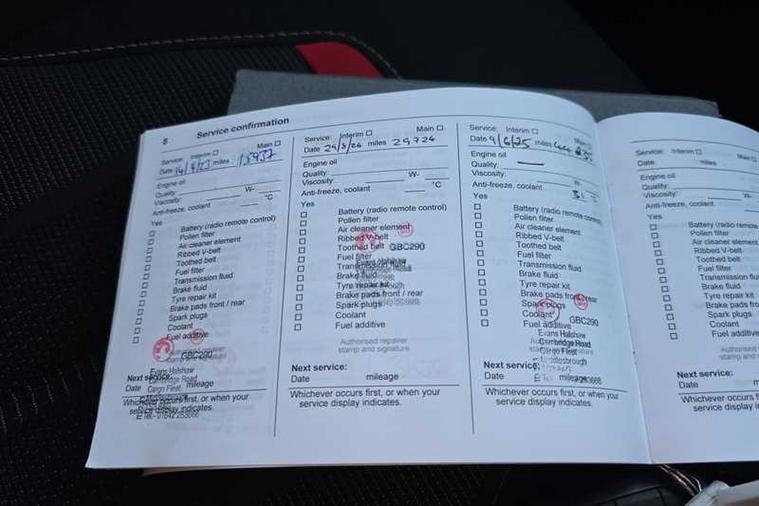 8 Service confirmation
Service: Interim Main
Date 14/8/23 miles 18937
Engine oil
Quality:
Viscosity: W-
Anti-freeze, coolant °C
Yes
Battery (radio remote control)
Pollen filter
Air cleaner element
Ribbed V-belt
Toothed belt
Fuel filter
Transmission fluid
Brake fluid
Tyre repair kit
Brake pads front / rear
Spark plugs
Coolant
Fuel additive
GBC290
Authorised repairer
stamp and signature
Evans Halshaw
Next service:
Cambridge Road
Date mileage
Cargo Fleet
Whichever occurs first, or when your
service display indicates.
E Tel:- 01642 253666
Service: Interim Main
Date 29/8/24 miles 29724
Engine oil
Quality: W-
Viscosity:
Anti-freeze, coolant °C
Yes
Battery (radio remote control)
Pollen filter
Air cleaner element
Ribbed V-belt
Toothed belt GBC290
Fuel filter
Evans Halshaw
Transmission fluid
Brake fluid
Tyre repair kit
Brake pads front / rear
Spark plugs
Coolant
Fuel additive
Authorised repairer
stamp and signature
Next service:
Date mileage
Whichever occurs first, or when your
service display indicates.
Service: Interim Main
Date 9/6/25 miles
Engine oil
Quality:
Viscosity: W-
Anti-freeze, coolant
Yes
Battery (radio remote control)
Pollen filter
Air cleaner element
Ribbed V-belt
Toothed belt
Fuel filter
Transmission fluid
Brake fluid
Tyre repair kit
Brake pads front / rear
Spark plugs
Coolant GBC290
Fuel additive
Evans Halshaw
Cambridge Road
Cargo Fleet
Middlesbrough
Next service:
Date mileage
Whichever occurs first, or when your
service display indicates.
Service: Interim Main
Date miles
Engine oil
Quality:
Viscosity: W-
Anti-freeze, coolant
Yes
Battery (radio remote
Pollen filter
Air cleaner element
Ribbed V-belt
Toothed belt
Fuel filter
Transmission fluid
Brake fluid
Tyre repair kit
Brake pads front /
Spark plugs
Coolant
Fuel additive
Authorised
stamp and
Next service:
Date
Whichever occurs
service display